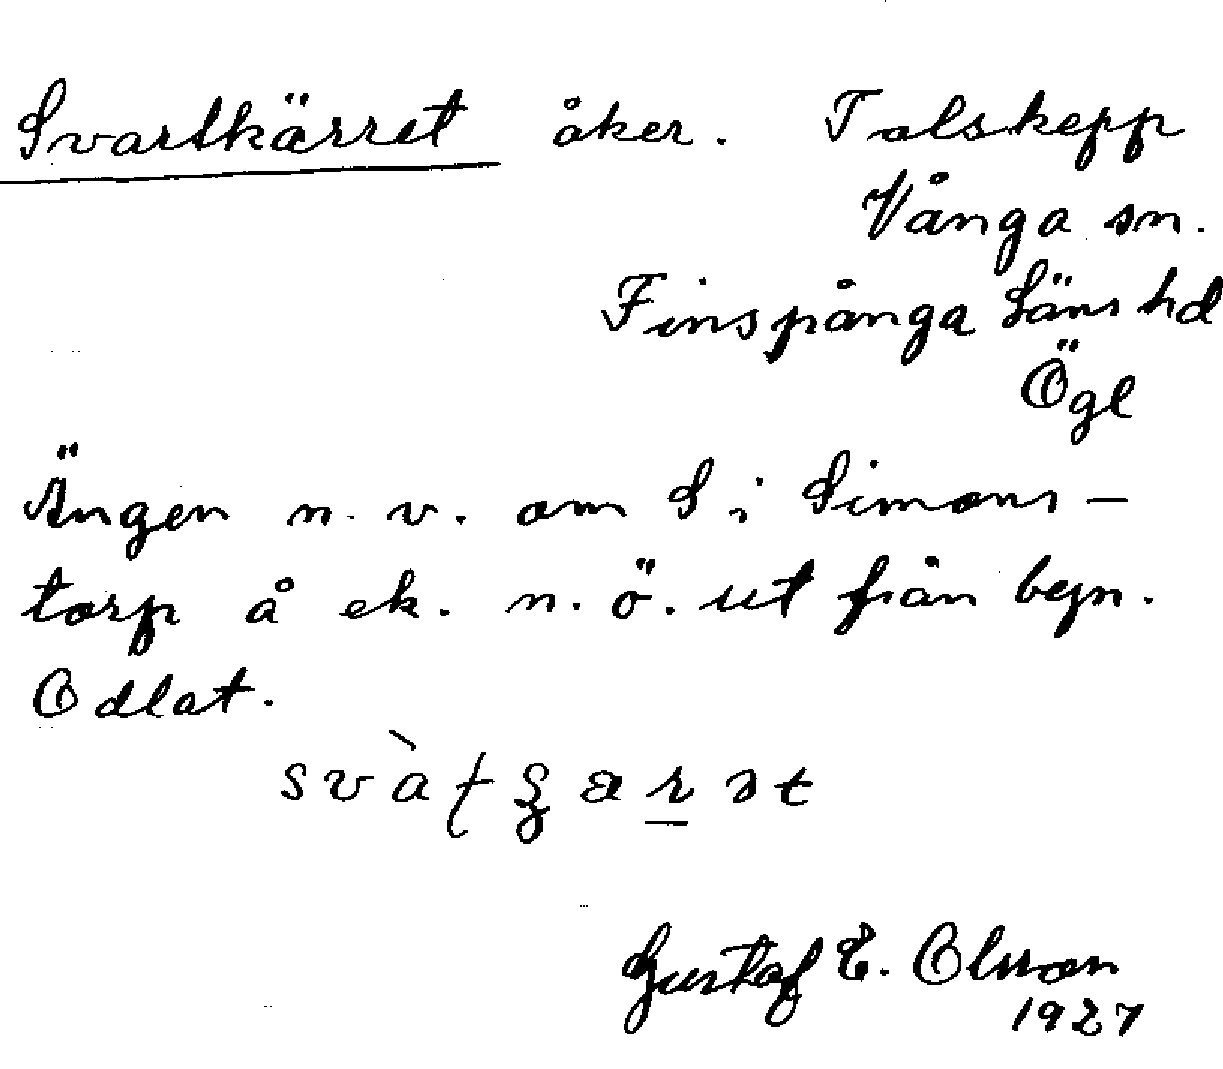 Svartkärret åker. Tolskepp
Vånga sn.
Finspånga Läns hd
Ögl
Ängen n. v. om S i Simons-
torp å ek. n. ö. ut från byn.
Odlat.
Gustaf E. Olsson
1927